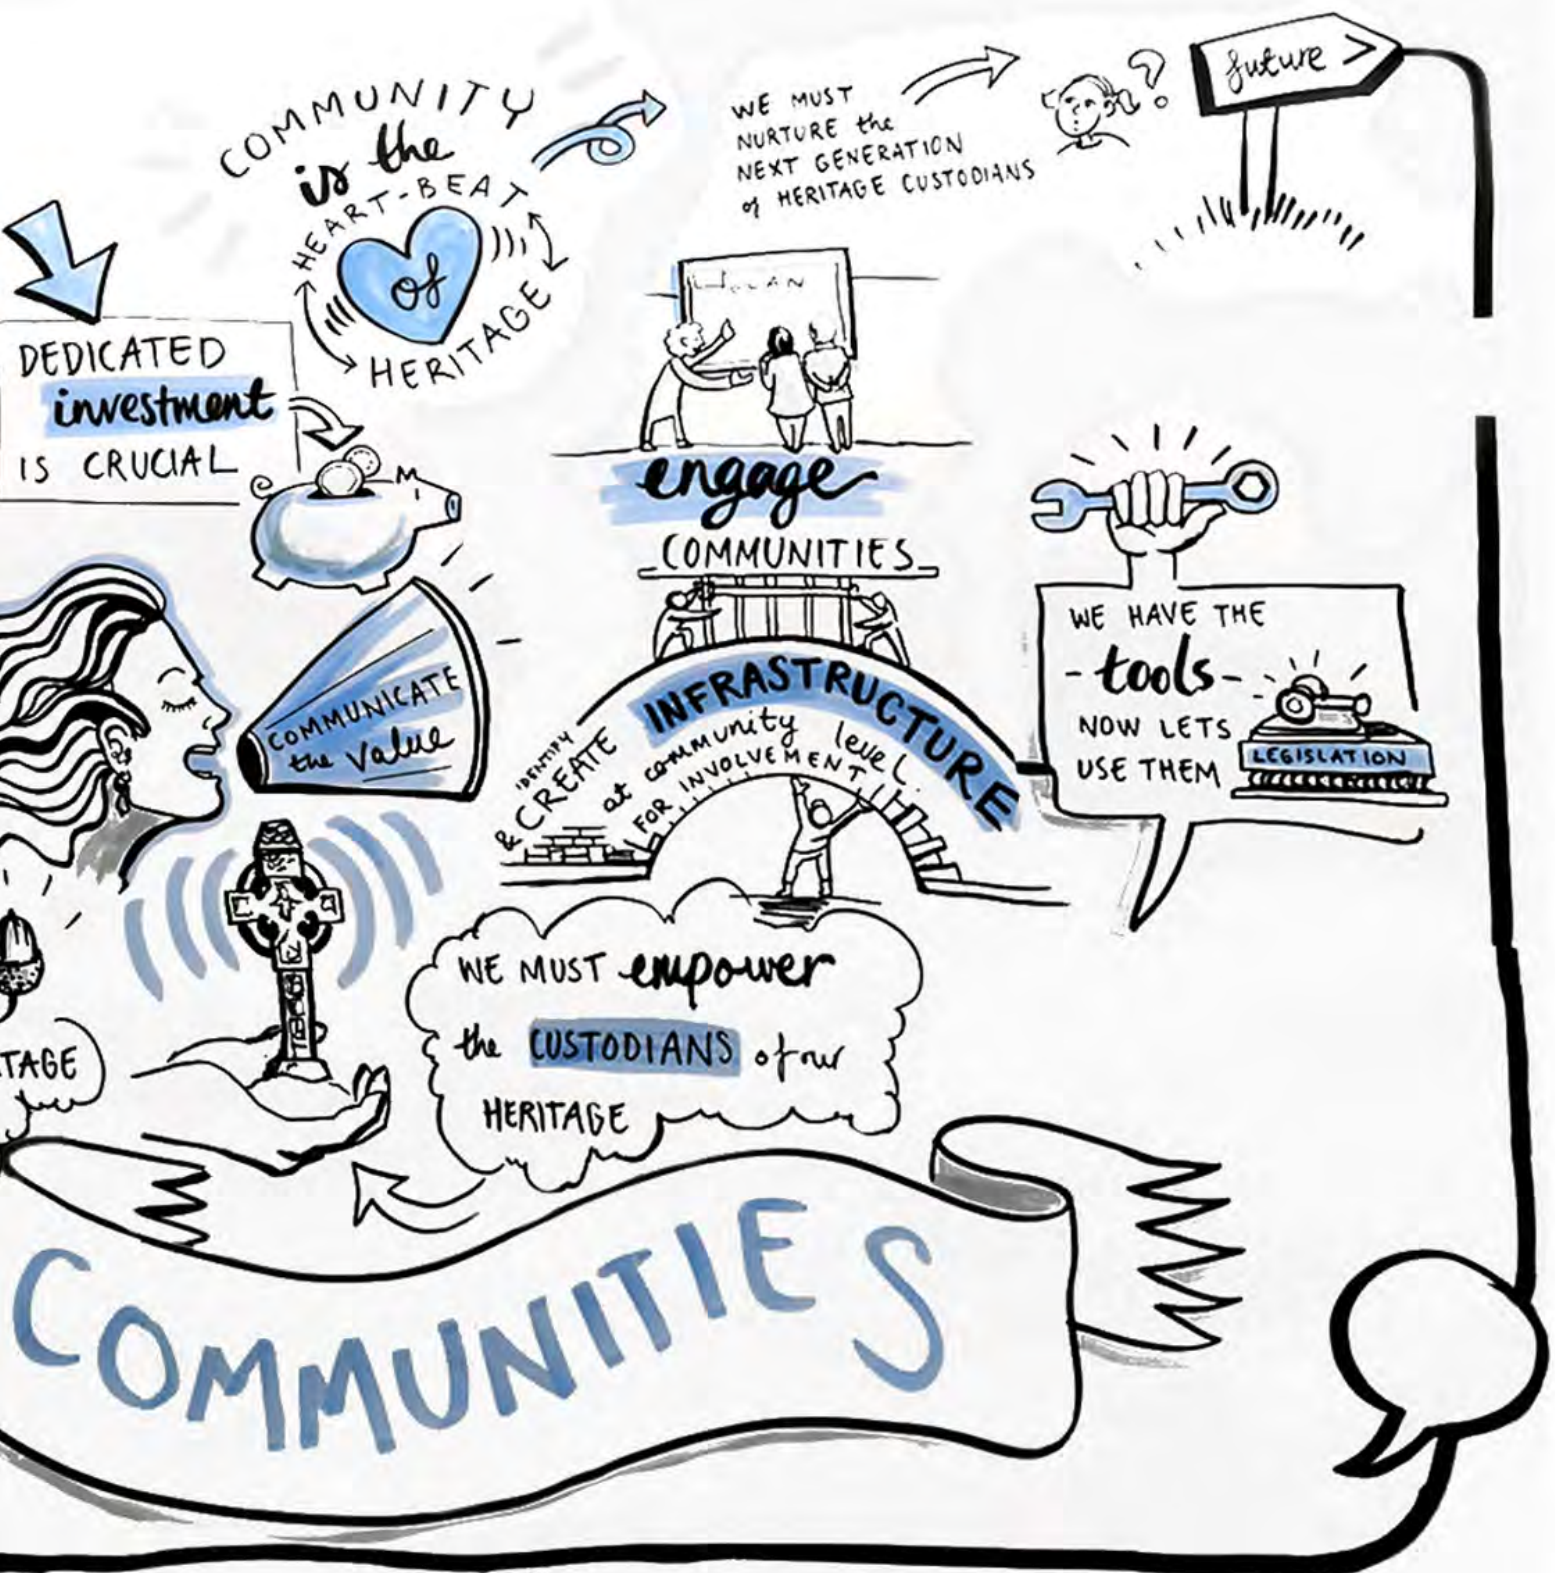 COMMUNITY
is the
HEART-BEAT
of
HERITAGE
WE MUST
NURTURE the
NEXT GENERATION
of HERITAGE CUSTODIANS
?
future >
DEDICATED
investment
IS CRUCIAL
engage
COMMUNITIES
COMMUNICATE
the value
IDENTIFY
& CREATE
INFRASTRUCTURE
at community level
FOR INVOLVEMENT
WE HAVE THE
- tools -
NOW LETS
USE THEM
LEGISLATION
TAGE
WE MUST empower
the CUSTODIANS of our
HERITAGE
COMMUNITIES